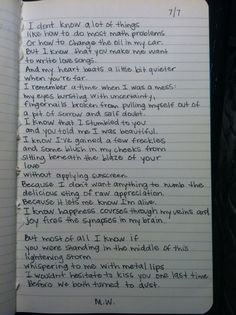 7/7
I dont know a lot of things
like how to do most math problems
Or how to change the oil in my car.
But I know that you make me want
to write love songs.
And my heart beats a little bit quieter
when you're far.
I remember a time when I was a mess:
my eyes bursting with uncertainty,
fingernails broken from pulling myself out of
a pit of sorrow and self doubt.
I know that I stumbled to you
and you told me I was beautiful.
I know I've gained a few freckles
and some blush in my cheeks from
sitting beneath the blaze of your
love
without applying sunscreen
Because I don't want anything to numb the
delicious sting of raw appreciation.
Because it lets me know I'm alive.
I know happness courses through my veins and
joy fires the synapses in my brain.
But most of all I know if
you were standing in the middle of this
lightening storm
whispering to me with metal lips
I wouldnt hesitate to kiss you one last time
Before we both turned to dust.
M.W.